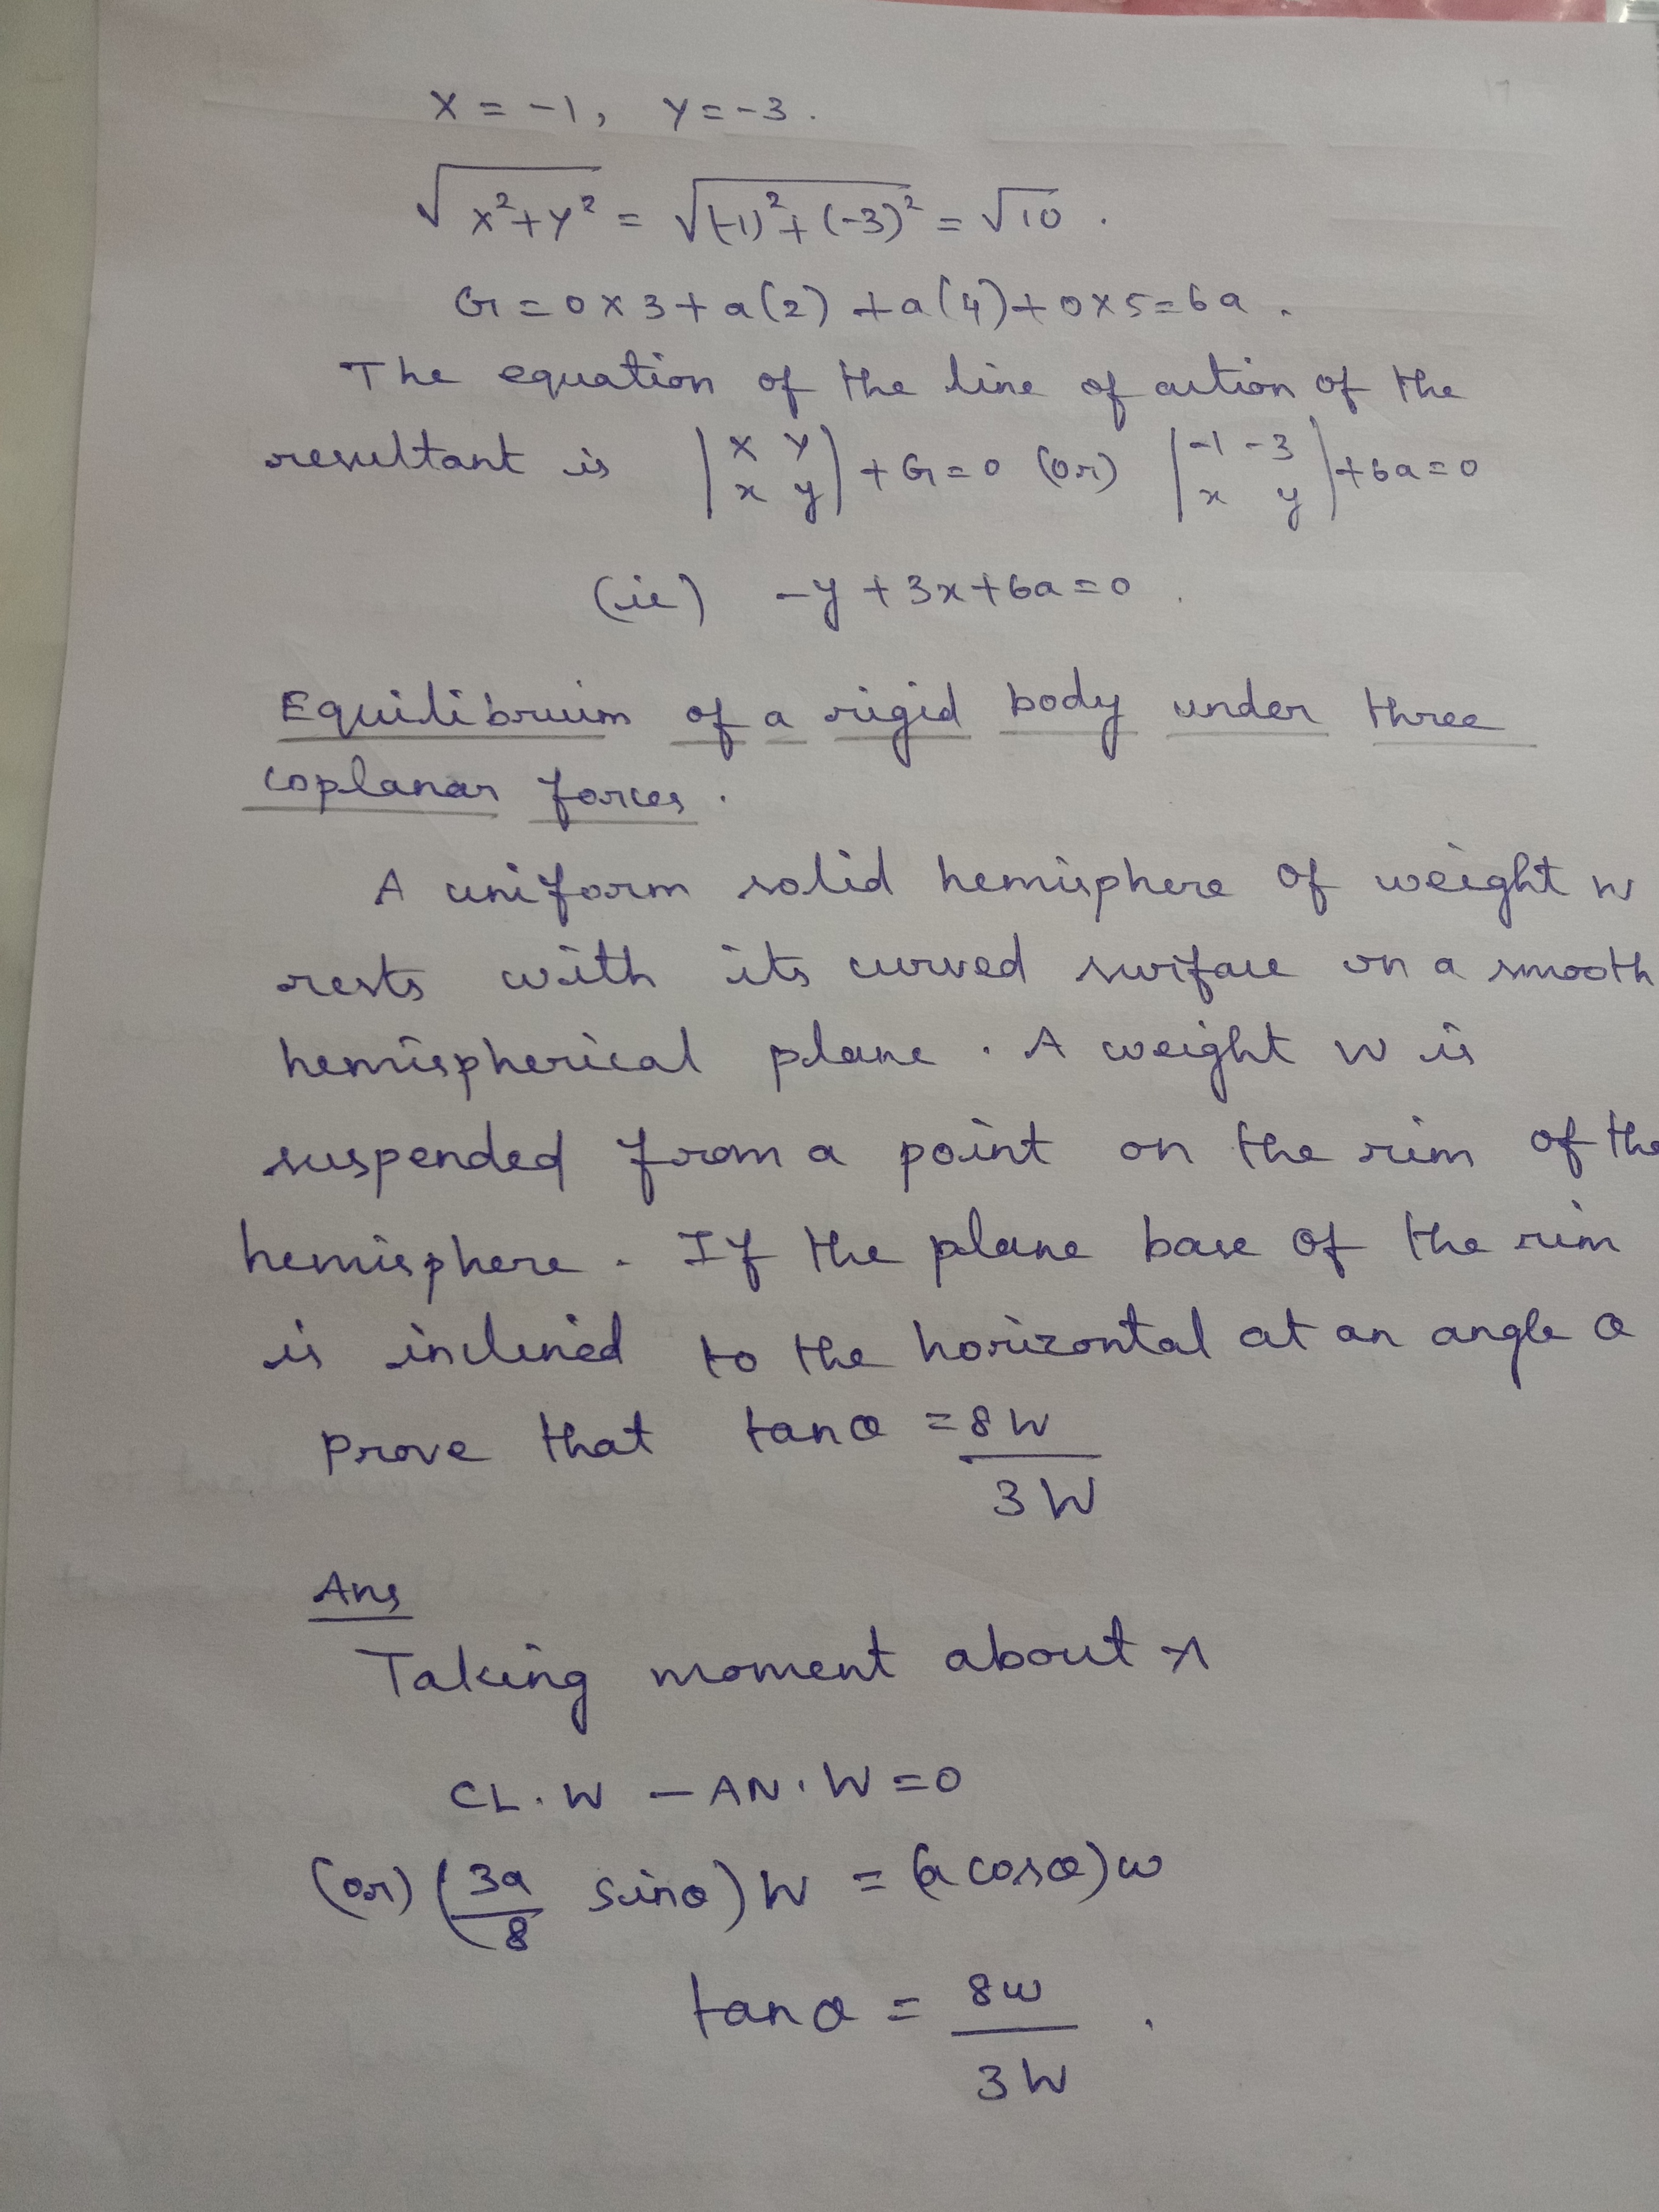 X = -1, Y = -3.
√(X²+Y²) = √((-1)²+(-3)²) = √10.
G = 0×3+a(2)+a(4)+0×5=6a.
The equation of the line of action of the
resultant is |X Y; x y|+G=0 (or) |-1 -3; x y|+6a=0
(ie) -y+3x+6a=0.
Equilibrium of a rigid body under three
coplanar forces.
A uniform solid hemisphere of weight W
rests with its curved surface on a smooth
hemispherical plane. A weight w is
suspended from a point on the rim of the
hemisphere. If the plane base of the rim
is inclined to the horizontal at an angle θ
prove that tanθ = 8w/3W
Ans
Taking moment about
CL.W - AN.W=0
(or) (3a/8 sinθ)W = (a cosθ)w
tanθ = 8w/3W.